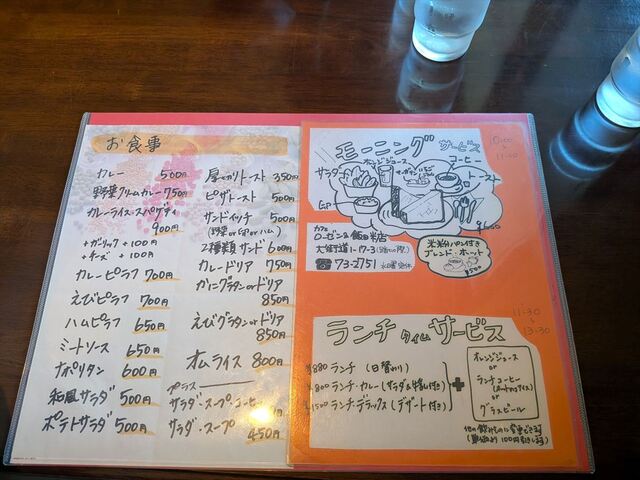 お食事
カレー 500円
野菜クリームカレー 750円
カレーライス・スパゲティ
900円
+ガーリック+100円
+チーズ +100円
カレーピラフ 700円
えびピラフ 700円
ハムピラフ 650円
ミートソース 650円
ナポリタン 600円
和風サラダ 500円
ポテトサラダ 500円
厚切りトースト 350円
ピザトースト 500円
サンドイッチ 500円
(野菜 or 卵 or ハム)
2種類サンド 600円
カレードリア 750円
かにグラタン or ドリア
850円
えびグラタン or ドリア
850円
オムライス 800円
プラス
サラダ・スープ・コーヒー
円
サラダ・スープ
450円
モーニング サービス
10:00
11:00
オレンジジュース
コーヒー
サラダ
トースト
カフェ
ローゼンヌ飯田米店
大街道1-17-3
73-2751 水曜定休
米粉パン付き
ブレンド・ホット
¥500
ランチタイムサービス
11:30
13:30
¥880 ランチ (日替わり)
¥800 ランチ・カレー (サラダ&牛乳付き)
¥1500 ランチ・デラックス (デザート付き)
+
オレンジジュース
or
ランチコーヒー
(ホット or アイス)
or
グラスビール
他の飲みものに変更できます
100円引きします)